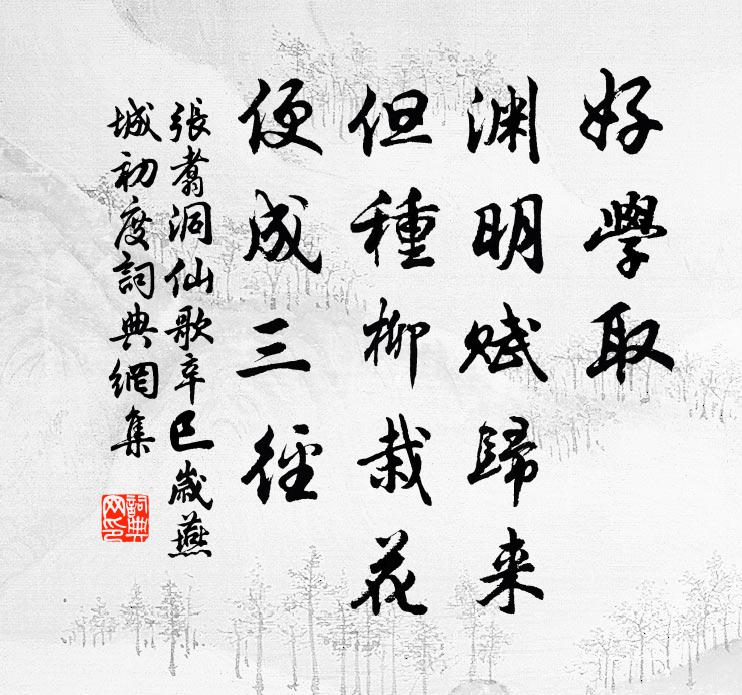 好學取
渊明赋歸来
但種柳栽花
便成三徑
張翥洞仙歌辛巳歲燕
城初度詞典網集
詞典
网印